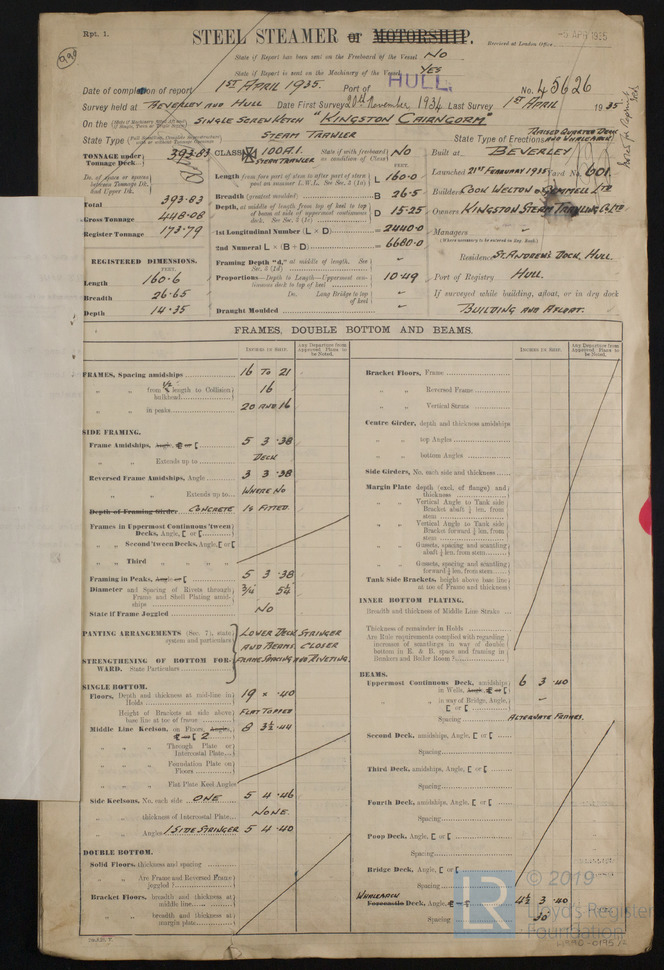 Rpt. 1.
STEEL STEAMER or MOTORSHIP.
Received at London Office
-5 APR 1935
990
State if Report has been sent on the Freeboard of the Vessel NO
State if Report is sent on the Machinery of the Vessel YES
Date of completion of report 1ST APRIL 1935. Port of HULL. No. 45626
Survey held at BEVERLEY AND HULL Date First Survey 20th November 1934 Last Survey 1ST APRIL 1935
On the SINGLE SCREW KETCH "KINGSTON CAIRNGORM"
State Type STEAM TRAWLER State Type of Erections RAISED QUARTER DECK AND WHALEBACK
TONNAGE under Tonnage Deck 393.83
Do. of space or spaces between Tonnage Dk. and Upper Dk.
Total 393.83
Gross Tonnage 448.08
Register Tonnage 173.79
REGISTERED DIMENSIONS.
FEET.
Length 160.6
Breadth 26.65
Depth 14.35
CLASS 100A1. STEAM TRAWLER State if with freeboard as condition of Class NO
FEET.
Length from fore part of stem to after part of stern post on summer L.W.L. See Sec. 2 (1a) L 160.0
Breadth (greatest moulded) B 26.5
Depth, at middle of length from top of keel to top of beam at side of uppermost continuous deck. See Sec. 2 (1c) D 15.25
1st Longitudinal Number (L × D) = 2440.0
2nd Numeral L × (B + D) = 6680.0
Framing Depth "d," at middle of length. See Sec. 2 (1d) -
Proportions—Depth to Length—Uppermost continuous deck to top of keel 10.49
Do. Long Bridge to top of keel -
Draught Moulded -
Built at BEVERLEY
Launched 21ST FEBRUARY 1935 Yard No. 601.
Builders COOK WELTON & GEMMELL LTD
Owners KINGSTON STEAM TRAWLING Co. LTD
Managers -
(Where necessary to be entered in Reg. Book.)
Residence ST. ANDREW'S DOCK, HULL.
Port of Registry HULL.
If surveyed while building, afloat, or in dry dock
BUILDING AND AFLOAT.
FRAMES, DOUBLE BOTTOM AND BEAMS.
INCHES IN SHIP.
Any Departure from Approved Plans to be Noted.
FRAMES, Spacing amidships 16 TO 21
" " from ½ length to Collision bulkhead 16
" " in peaks 20 AND 16
SIDE FRAMING.
Frame Amidships, Angle, [ or [ 5 3 .38
" " Extends up to DECK
Reversed Frame Amidships, Angle 3 3 .38
" " " Extends up to WHERE NO
Depth of Framing Girder CONCRETE IS FITTED.
Frames in Uppermost Continuous 'tween Decks, Angle, [ or [
" " Second 'tween Decks, Angle, [ or [
" " Third " "
Framing in Peaks, Angle or [ 5 3 .38
Diameter and Spacing of Rivets through Frame and Shell Plating amidships 3/4 5¼
State if Frame Joggled NO
PANTING ARRANGEMENTS (Sec. 7), state system and particulars
LOWER DECK STRINGER AND BEAMS CLOSER
STRENGTHENING OF BOTTOM FORWARD. State Particulars
FRAME SPACING AND RIVETING.
SINGLE BOTTOM.
Floors, Depth and thickness at mid-line in Holds 19 × .40
" Height of Brackets at side above base line at toe of frame FLAT TOPPED
Middle Line Keelson, on Floors, Angle, [ or [ 2 8 3½ .44
" " Through Plate or Intercostal Plate
" " Foundation Plate on Floors
" " Flat Plate Keel Angles
Side Keelsons, No. each side ONE 5 4 .46
" " thickness of Intercostal Plate NONE
" " Angles 1 SIDE STRINGER 5 4 .40
DOUBLE BOTTOM.
Solid Floors, thickness and spacing
" " Are Frame and Reversed Frame joggled?
Bracket Floors, breadth and thickness at middle line
" " breadth and thickness at margin plate
INCHES IN SHIP.
Any Departure from Approved Plans to be Noted.
Bracket Floors, Frame
" " Reversed Frame
" " Vertical Struts
Centre Girder, depth and thickness amidships
" " top Angles
" " bottom Angles
Side Girders, No. each side and thickness
Margin Plate depth (excl. of flange) and thickness
" " Vertical Angle to Tank side Bracket abaft ¼ len. from stem
" " Vertical Angle to Tank side Bracket forward ¼ len. from stem
" " Gussets, spacing and scantling abaft ¼ len. from stem
" " Gussets, spacing and scantling forward ¼ len. from stem
Tank Side Brackets, height above base line at toe of Frame and thickness
INNER BOTTOM PLATING.
Breadth and thickness of Middle Line Strake
Thickness of remainder in Holds
Are Rule requirements complied with regarding increase of scantlings in way of double bottom in E. & B. space and framing in Bunkers and Boiler Room?
BEAMS.
Uppermost Continuous Deck, amidships in Wells, Angle, [ or [ 6 3 .40
" " in way of Bridge, Angle, [ or [ -
Spacing ALTERNATE FRAMES.
Second Deck, amidships, Angle, [ or [
Spacing
Third Deck, amidships, Angle, [ or [
Spacing
Fourth Deck, amidships, Angle, [ or [
Spacing
Poop Deck, Angle, [ or [
Spacing
Bridge Deck, Angle, [ or [
Spacing
WHALEBACK
Forecastle Deck, Angle, [ or [ 4½ 3 .40
Spacing 30
© 2019
Lloyd's Register
Foundation